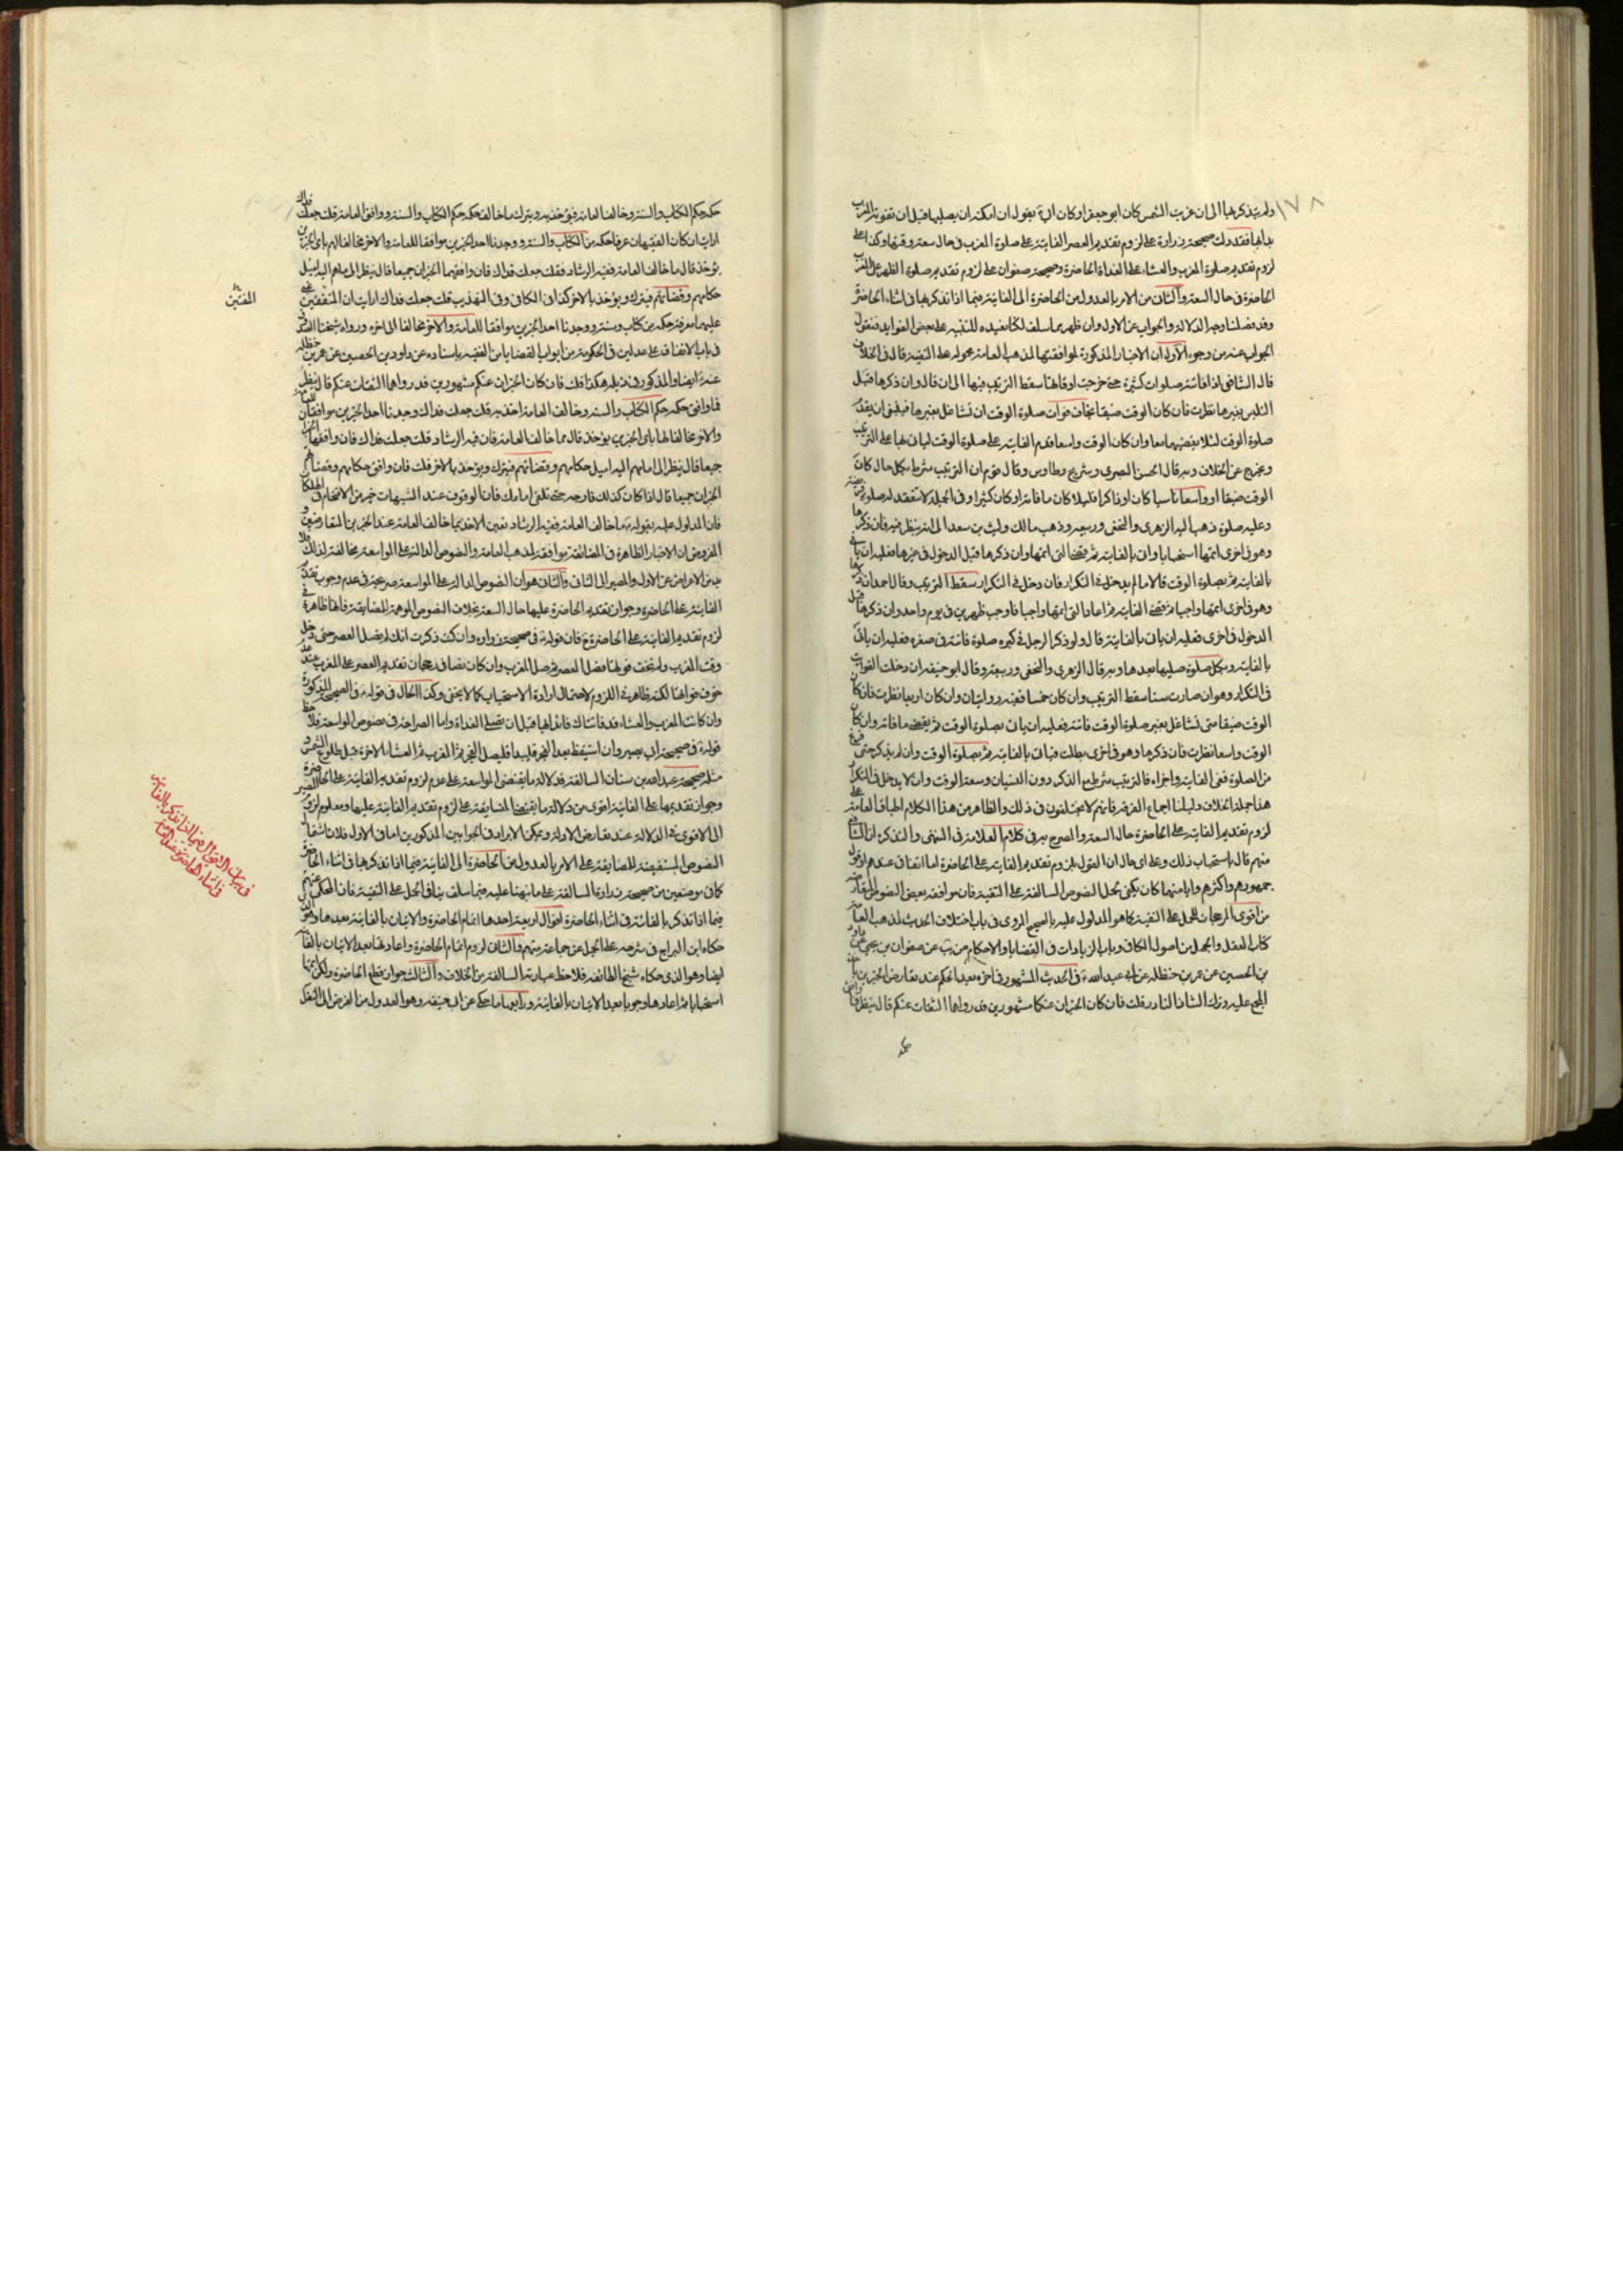 ١٧٨
ولم يتذكرها الى ان غربت الشمس كان ابو جعفر او كان ابي يقول ان امكنه ان يصليها قبل ان تفوته المغرب
بدأ بها فقد دلت صحيحة زرارة على لزوم تقديم العصر الفايتة على صلوة المغرب في حال سعة وقتها وكذا على
لزوم تقديم صلوة المغرب والعشاء على الغداة الحاضرة وصحيحة صفوان على لزوم تقديم صلوة الظهر على المغرب
الحاضرة في حال السعة والثاني من الامر بالعدول من الحاضرة الى الفايتة فيما اذا تذكرها في اثناء الحاضرة
وقد فصلنا وجه الدلالة والجواب عن الاول وان ظهر مما سلف لكنا نعيده للتنبيه على بعض الفوايد فنقول
الجواب عنه من وجوه الاول ان الاخبار المذكورة لموافقتها لمذهب العامة محمولة على التقية قال في الخلاف
قال الشافعي اذا فاتته صلوات كثيرة حتى خرجت اوقاتها سقط الترتيب فيها الى ان قال وان ذكرها قبل
التلبس بغيرها نظرت فان كان الوقت ضيقا يخاف فوات صلوة الوقت ان تشاغل بغيرها فينبغي ان يقدم
صلوة الوقت لئلا يقضيهما معا وان كان الوقت واسعا قدم الفايتة على صلوة الوقت ليأتي بها على الترتيب
ويخرج عن الخلاف وبه قال الحسن البصري وشريح وطاوس وقال قوم ان الترتيب شرط بكل حال كان
الوقت ضيقا او واسعا ناسيا كان او ذاكرا قليلا كان ما فاته او كان كثيرا وفي الجملة لا تنعقد له صلوة فريضة
وعليه صلوة ذهب اليه الزهري والنخعي وربيعة وذهب مالك وليث بن سعد الى انه ينظر فيه فان ذكرها
وهو في اخرى اتمها استحبابا واتى بالفايتة ثم قضى التي اتمها وان ذكرها قبل الدخول في غيرها فعليه ان يأتي
بالفايتة ثم بصلوة الوقت قال ما لم يدخل في التكرار فان دخل في التكرار سقط الترتيب وقال احمد ان ذكرها
وهو في اخرى اتمها واجبا ثم قضى الفايتة ثم اعاد التي اتمها واجبا فاوجب ظهرين في يوم واحد وان ذكرها قبل
الدخول في اخرى فعليه ان يأتي بالفايتة قال ولو ذكر الرجل في كبره صلوة فاتته في صغره فعليه ان يأتي
بالفايتة وبكل صلوة صليها بعدها وبه قال الزهري والنخعي وربيعة وقال ابو حنيفة ان دخلت الفوايت
في التكرار وهو ان صارت ستا سقط الترتيب وان كان خمسا ففيه روايتان وان كان اربعا نظرت فان كان
الوقت ضيقا متى تشاغل بغير صلوة الوقت فاتته فعليه ان يأتي بصلوة الوقت ثم يقضي ما فاته وان كان
الوقت واسعا نظرت فان ذكرها وهو في اخرى بطلت فيأتي بالفايتة ثم بصلوة الوقت وان لم يذكر حتى فرغ
من الصلوة قضى الفايتة واجزأه فالترتيب شرط مع الذكر دون النسيان وسعة الوقت وان لا يدخل في التكرار
هذا جملة الخلاف دليلنا اجماع الفرقة فانهم لا يختلفون في ذلك والظاهر من هذا الكلام اطباق العامة على
لزوم تقديم الفايتة على الحاضرة حال السعة والمصرح به في كلام العلامة في المنتهى والتذكرة ان الشافعي
منهم قال باستحباب ذلك وعلى اي حال ان القول بلزوم تقديم الفايتة على الحاضرة اما اتفاقي عندهم او قول
جمهورهم واكثرهم وايا منهما كان يكفي لحمل النصوص السالفة على التقية فان موافقة بعض النصوص المتعارضة
من اقوى المرجحات للحمل على التقية كما هو المدلول عليه بالصحيح المروي في باب اختلاف الحديث لمذهب العامة
كتاب العقل والجهل من اصول الكافي وباب الزيادات في القضايا والاحكام من يب عن صفوان بن يحيى عن داود
بن الحصين عن عمر بن حنظلة عن ابي عبد الله ع في الحديث المشهور في اخره بعد الحكم عند تعارض الخبرين بأخذ
المجمع عليه وترك الشاذ النادر قلت فان كان الخبران عنكما مشهورين قد رواهما الثقات عنكم قال ينظر فما وافق
حكمه
حكمه حكم الكتاب والسنة وخالف العامة فيؤخذ به ويترك ما خالف حكمه حكم الكتاب والسنة ووافق العامة قلت جعلت فداك
ارايت ان كان الفقيهان عرفا حكمه من الكتاب والسنة ووجدنا احد الخبرين موافقا للعامة والاخر مخالفا لهم باي الخبرين
يؤخذ قال ما خالف العامة ففيه الرشاد فقلت جعلت فداك فان وافقهما الخبران جميعا قال ينظر الى ما هم اليه اميل
حكامهم وقضاتهم فيترك ويؤخذ بالاخر كذا في الكافي وفي التهذيب قلت جعلت فداك ارايت ان المتفقهين غبي
الفقيهين
عليهما معرفة حكمه من كتاب وسنة ووجدنا احد الخبرين موافقا للعامة والاخر مخالفا الى اخره ورواه شيخنا الصدوق
في باب الاتفاق على عدلين في الحكومة من ابواب القضايا من الفقيه باسناده عن داود بن الحصين عن عمر بن حنظلة
عنه ع ايضا والمذكور في ذيله هكذا قلت فان كان الخبران عنكم مشهورين قد رواهما الثقات عنكم قال ينظر
فما وافق حكمه حكم الكتاب والسنة وخالف العامة اخذ به قلت جعلت فداك وجدنا احد الخبرين موافقا للعامة
والاخر مخالفا لها باي الخبرين يؤخذ قال بما خالف العامة فان فيه الرشاد قلت جعلت فداك فان وافقها الخبران
جميعا قال ينظر الى ما هم اليه اميل حكامهم وقضاتهم فيترك ويؤخذ بالاخر قلت فان وافق حكامهم وقضاتهم
الخبران جميعا قال اذا كان كذلك فارجه حتى تلقى امامك فان الوقوف عند الشبهات خير من الاقتحام في الهلكات
فان المدلول عليه بقوله ع ما خالف العامة ففيه الرشاد تعين الاخذ بما خالف العامة عند الخبرين المتعارضين و
المفروض ان الاخبار الظاهرة في المضايقة موافقة لمذهب العامة والنصوص الدالة على المواسعة مخالفة لذلك فلا
بد من الاعراض عن الاول والمصير الى الثاني والثاني هو ان النصوص الدالة على المواسعة صريحة في عدم وجوب تقديم
الفايتة على الحاضرة وجواز تقديم الحاضرة عليها حال السعة بخلاف النصوص الموهمة للمضايقة فانها ظاهرة في
لزوم تقديم الفايتة على الحاضرة ح فان قوله ع في صحيحة زرارة وان كنت ذكرت انك لم تصل العصر حتى دخل
وقت المغرب ولم تخف فوتها فصل العصر ثم صل المغرب وان كان نصا في رجحان تقديم العصر على المغرب عند عدم
خوف فواتها لكنه ظاهر في اللزوم لاحتمال ارادة الاستحباب كما لا يخفى وكذا الحال في قوله ع في الصحيح المذكورة
وان كانت المغرب والعشاء قد فاتتاك فابدأ بهما قبل ان تصلي الغداة واما الصراحة في نصوص المواسعة فلاحظ
قوله ع في صحيحة ابي بصير وان استيقظ بعد الفجر فليبدأ فليصل الفجر ثم المغرب ثم العشاء الاخرة قبل طلوع الشمس و
مثله صحيحة عبد الله بن سنان السالفة فدلالة ما يقتضي المواسعة على عدم لزوم تقديم الفايتة على الحاضرة
وجواز تقديمها على الفايتة اقوى من دلالة ما يقتضي المضايقة على لزوم تقديم الفايتة عليها ومعلوم لزوم المصير
الى الاقوى في الدلالة عند تعارض الادلة ويمكن الايراد في الجوابين المذكورين اما في الاول فلان اشتمال
النصوص المستفيضة للمضايقة على الامر بالعدول من الحاضرة الى الفايتة فيما اذا تذكرها في اثناء الحاضرة
كما في موضعين من صحيحة زرارة السالفة على ما نبهنا عليه فيما سلف ينافي الحمل على التقية فان المحكي عنهم
فيما اذا تذكر بالفايتة في اثناء الحاضرة اقوال اربعة احدها اتمام الحاضرة والاتيان بالفايتة بعدها وهو الذي
حكاه ابن البراج في شرحه على الجمل عن جماعة منهم والثاني لزوم اتمام الحاضرة واعادتها بعد الاتيان بالفايتة
ايضا وهو الذي حكاه شيخ الطائفة فلاحظ عبارته السالفة من الخلاف والثالث جواز قطع الحاضرة ولكن اتمها
استحبابا ثم اعادها وجوبا بعد الاتيان بالفايتة ورابعها ما حكي عن ابي حنيفة وهو العدول من الفرض الى النفل
في بيان الاقوال فيما اذا تذكر بالفايتة
في اثناء الحاضرة